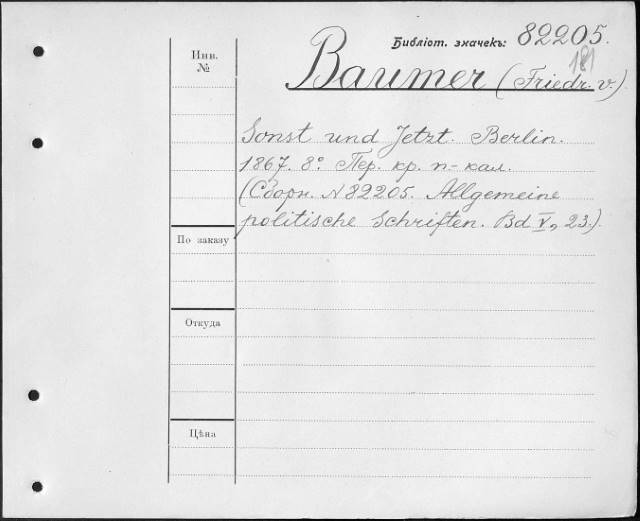 Библіот. значекъ: 82205.
181
Инв.
№
Baumer (Friedr. v.)
Sonst und Jetzt. Berlin.
1867. 8° Пер. кр. п-кал.
(Сборн. №82205. Allgemeine
politische Schriften. Bd V, 23.)
По заказу
Откуда
Цѣна